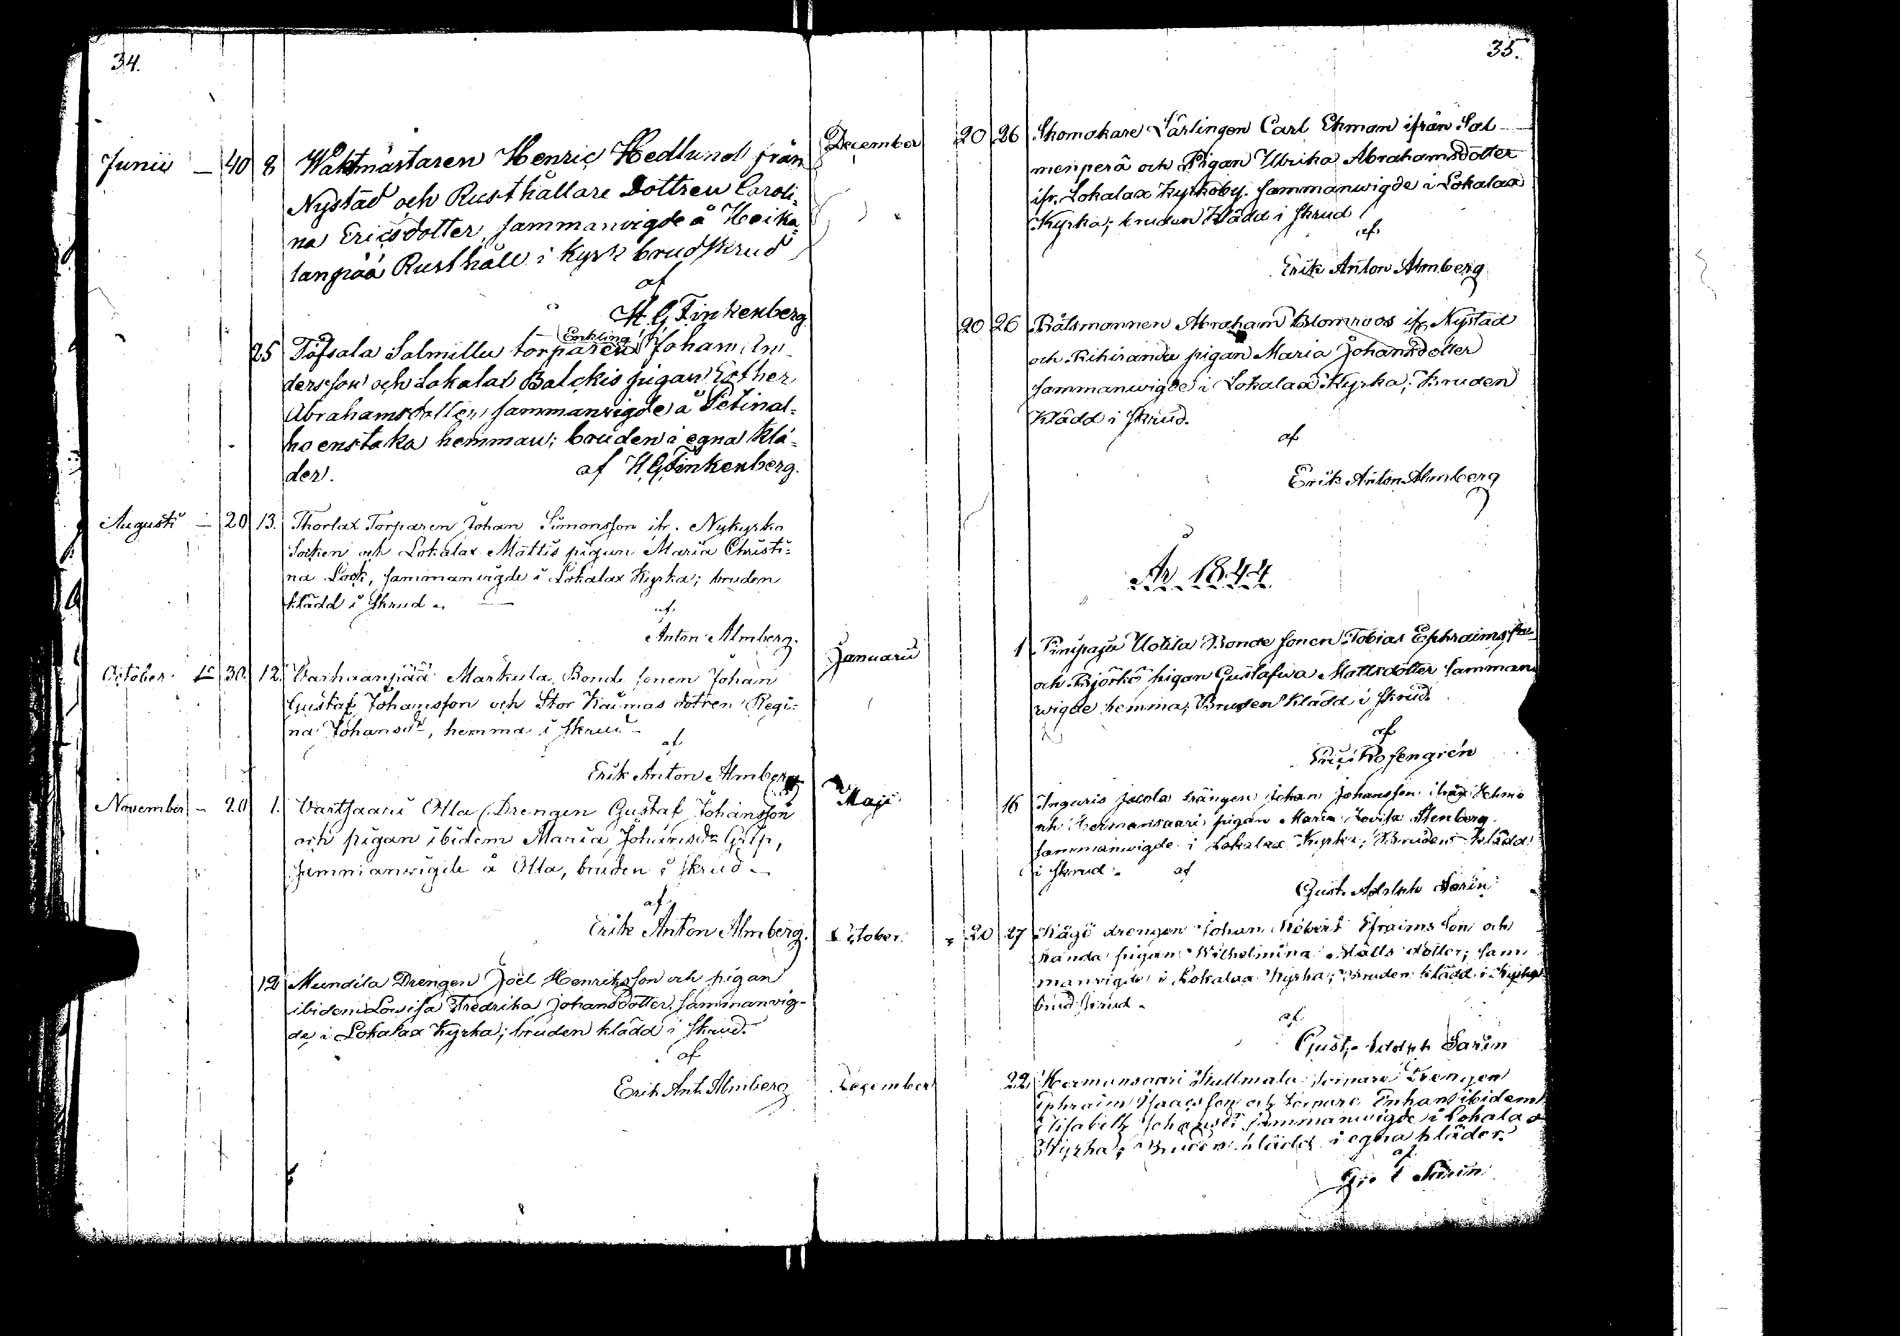 34.
Junii — 40 8 Waktmästaren Henric Hedlund från
Nystad och Rusthållare Dottren Caroli=
na Ericsdotter, sammanvigde å Heika=
lanpää Rusthåll i Kyrk brudskrud
af
H. G. Finkenberg
Enkling
25 Töfsala Salmillu torparen Johan An-
dersson och Lokalax Balckis pigan Esther
Abrahamsdotter, sammanvigde å
ho enstaka hemman; bruden i egna klä=
der. af H. G. Finkenberg.
Augusti — 20 13. Thorlax Torparen Johan Simonsson ifr. Nykyrko
Socken och Lokalax Mattis pigan Maria Christi=
na Look, sammanvigde i Lokalax Kyrka; bruden
klädd i Skrud.
af
Anton Almberg.
October 30. 12. Varhaanpää Markula Bonde sonen Johan
Gustaf Johansson och Stor Kaumas dotren Regi=
na Johansdr, hemma i Skrud
af
Erik Anton Almberg
November — 20 1. Vartsaari Olla Drengen Gustaf Johansson
och pigan ibidem Maria Johansdr
sammanvigde å Olla, bruden i Skrud
af
Erik Anton Almberg.
12 Mundila Drengen Joël Henriksson och pigan
ibidem Lovisa Fredrika Johansdotter, sammanvig-
de i Lokalax Kyrka; bruden klädd i Skrud.
af
Erik Ant. Almberg
35.
December 20 26 Skomakare Lärlingen Carl Ekman ifrån Sal-
menperä och Pigan Ulrika Abrahamsdotter
ifr. Lokalax Kyrkoby. sammanwigde i Lokalax
Kyrka; bruden klädd i Skrud
af
Erik Anton Almberg
20 26 Båtsmannen Abraham Blomroos ifr. Nystad
och Rihiranda pigan Maria Johansdotter
sammanwigde i Lokalax Kyrka; Bruden
klädd i Skrud.
af
Erik Anton Almberg
År 1844
Januarii 1 Pinipaju Uotila Bonde sonen Tobias Ephraimsson
och Björkö pigan Gustafwa Mattsdotter samman
wigde hemma; Bruden klädd i Skrud.
af
Rosengrén
Maji 16 Janola drängen Johan Johansson
och Hermansaari pigan Maria Lovisa Stenberg
sammanwigde i Lokalax Kyrka; Bruden klädd
i Skrud. af
Gust. Adolph Sarin
October 20 27 Kågö drengen Johan Robert Efraimsson och
Randa pigan Wilhelmina Matts dotter; sam
manvigde i Lokalax Kyrka; Bruden klädd i Kyrko
brud skrud.
af
Gust. Adolph Sarin
December 22 Hermansaari Kullmala torpare Drengen
Ephraim Isaacsson och torpare Enkan ibidem
Elisabeth Johansdr sammanwigde i Lokalax
Kyrka; Bruden klädd i egna kläder.
af
Sarin